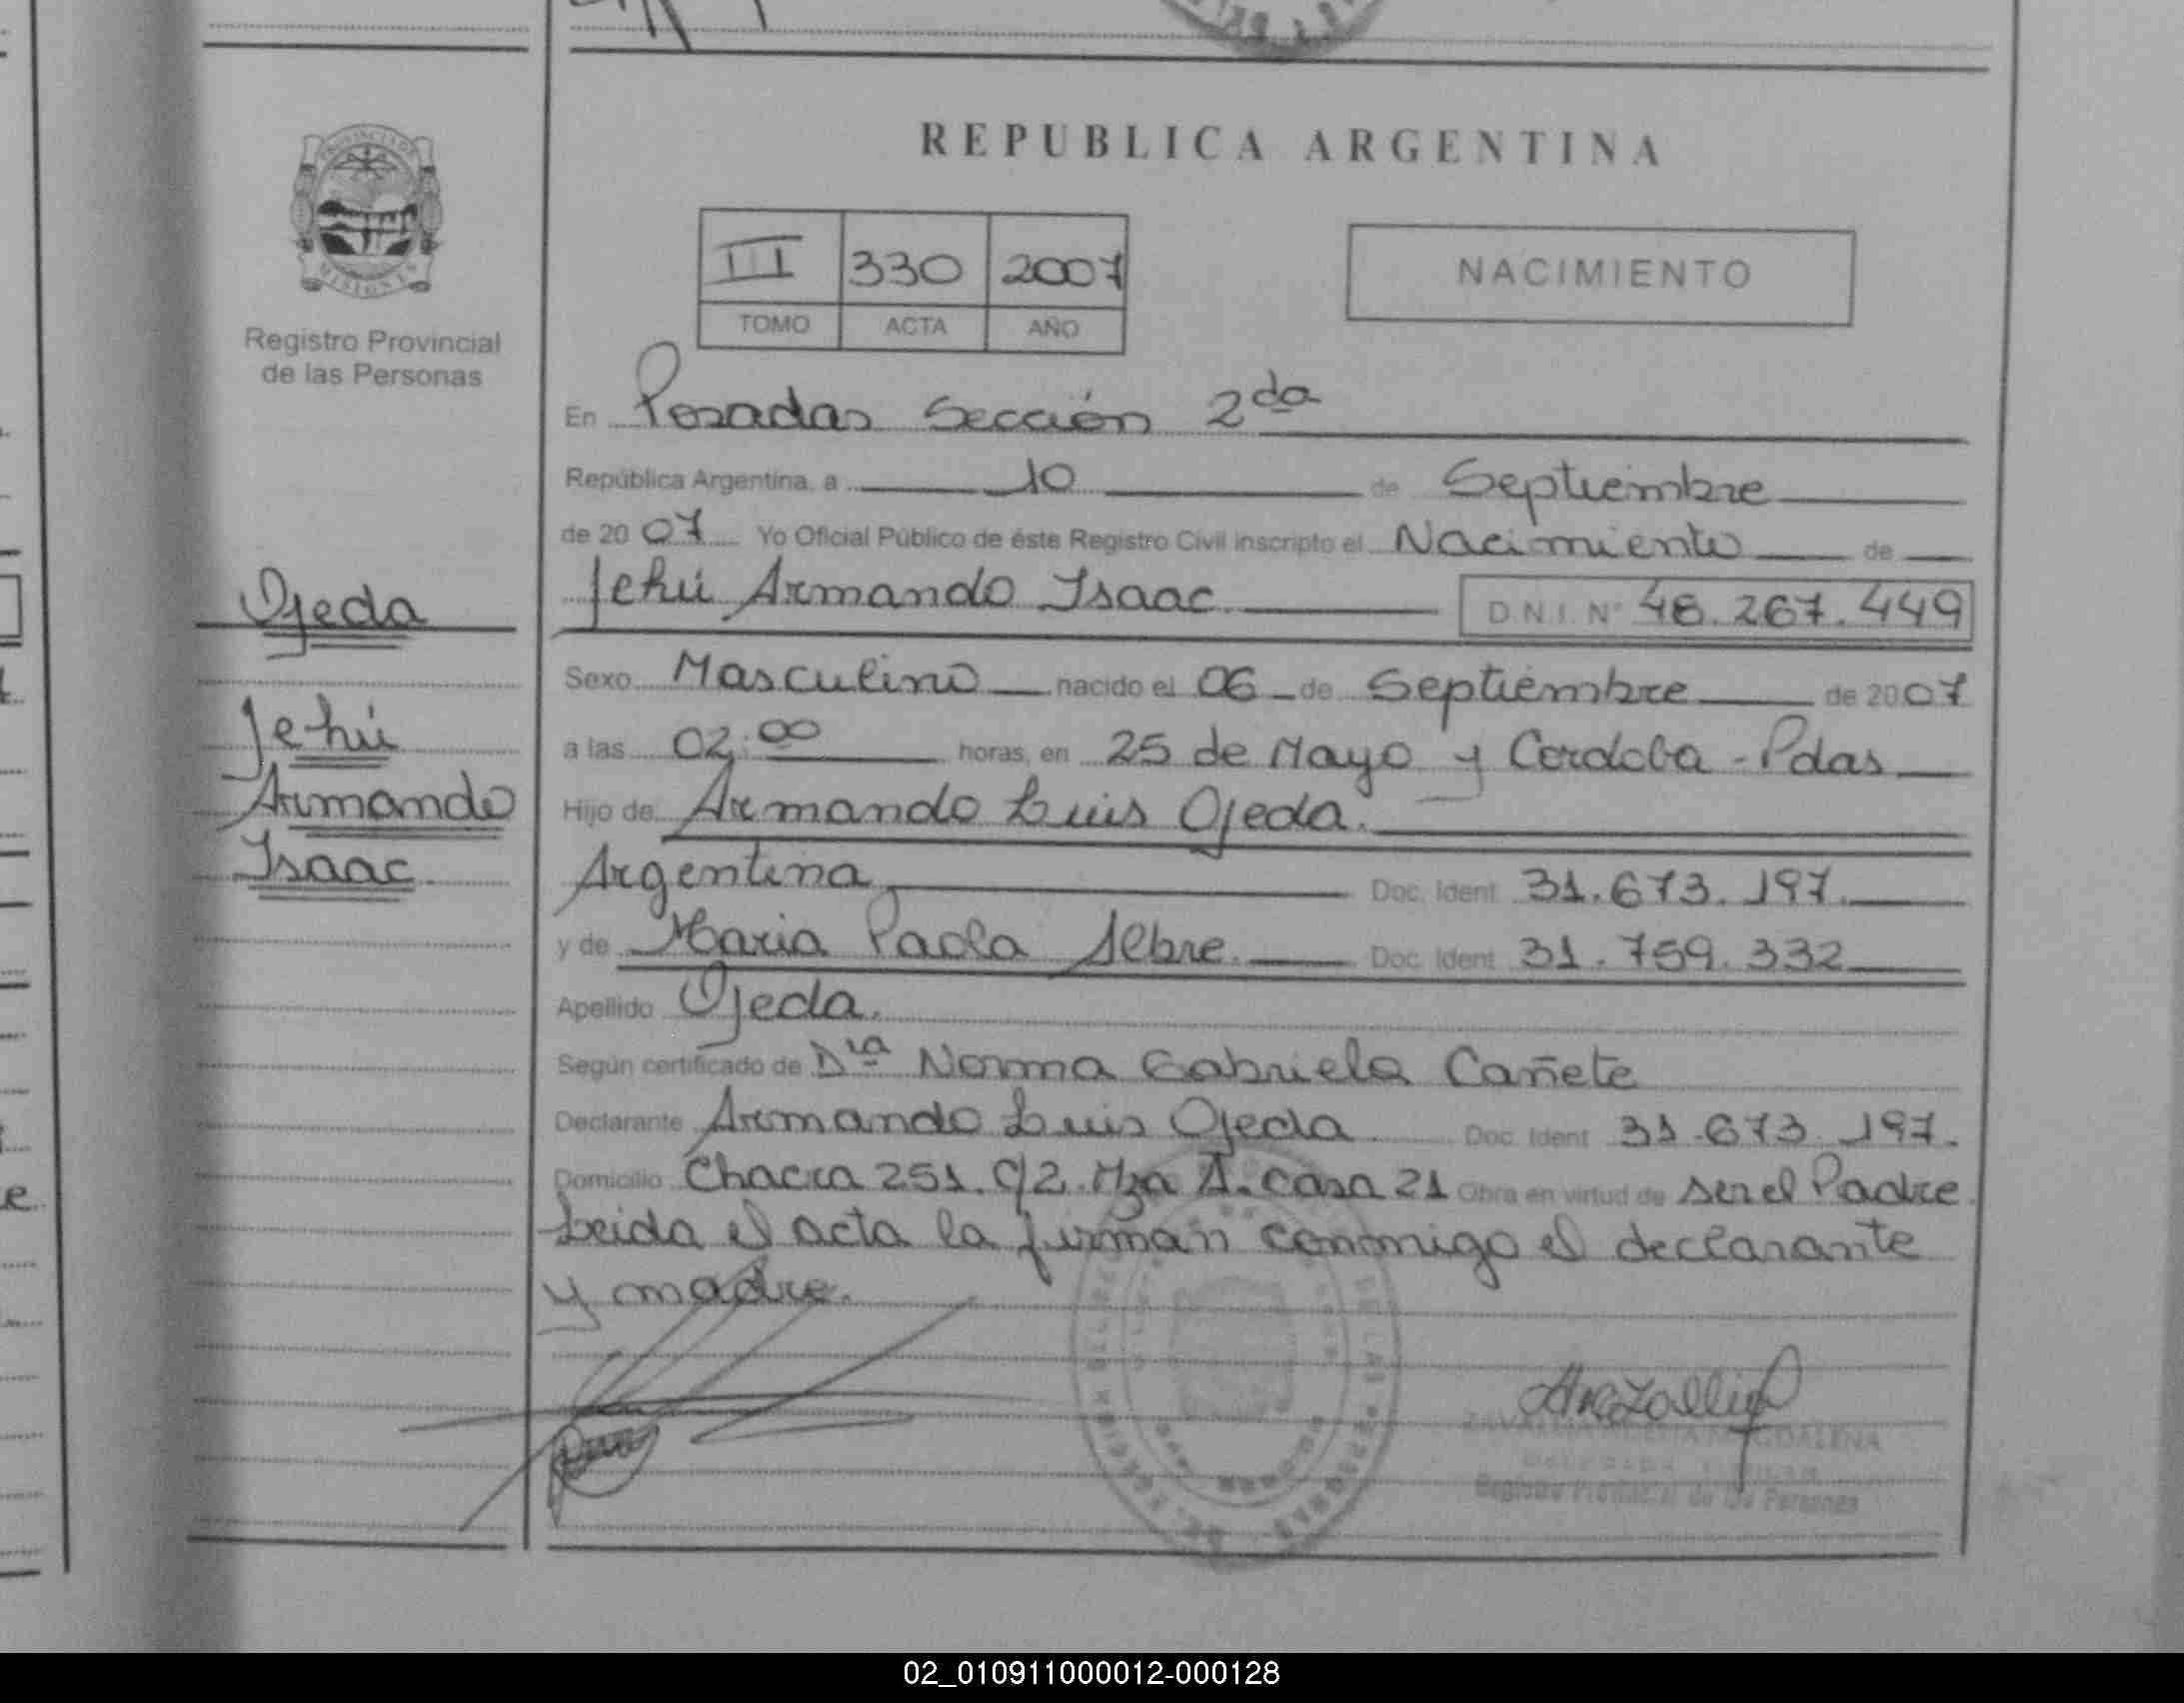 REPUBLICA ARGENTINA
III 330 2007
TOMO ACTA AÑO
NACIMIENTO
Registro Provincial
de las Personas
En Posadas Sección 2da
República Argentina, a 10 de Septiembre
de 2007 Yo Oficial Público de éste Registro Civil inscripto el Nacimiento de
Jehú Armando Isaac. D.N.I. Nº 48.267.449
Ojeda
Jehú
Armando
Isaac.
Sexo Masculino nacido el 06 de Septiembre de 2007
a las 02:00 horas, en 25 de Mayo y Cordoba - Pdas
Hijo de Armando Luis Ojeda.
Argentina Doc. Ident. 31.673.197.
y de Maria Paola Sebre. Doc. Ident. 31.759.332
Apellido Ojeda.
Según certificado de Dra Norma Gabriela Cañete
Declarante Armando Luis Ojeda Doc. Ident 31.673.197.
Domicilio Chacra 251. C/2. Mza A. casa 21 Obra en virtud de ser el Padre.
Leida el acta la firman conmigo el declarante
y madre.
Registro Provincial de las Personas
02_010911000012-000128